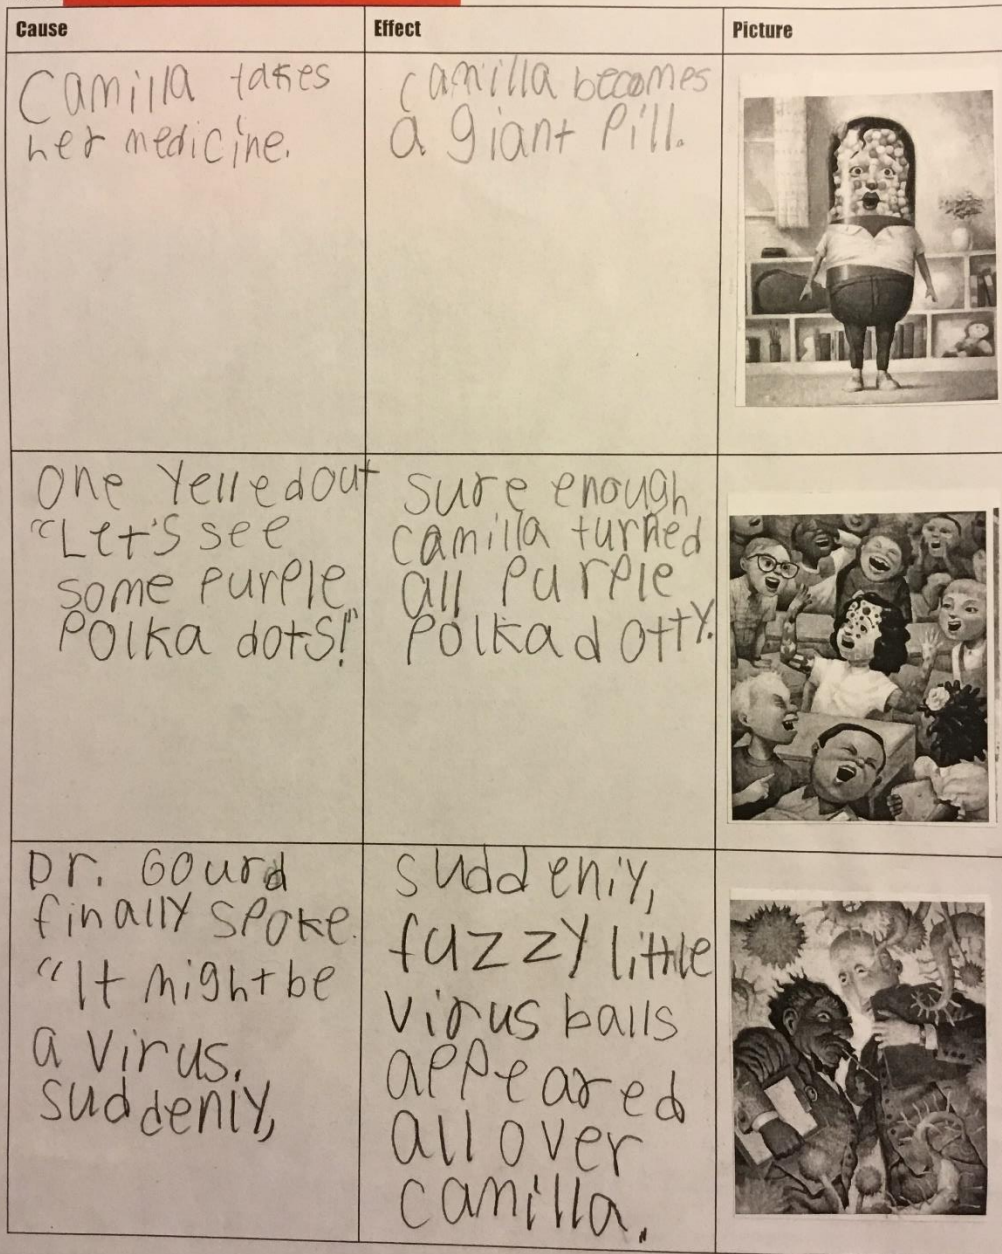 Cause
Effect
Picture
Camilla takes
her medicine.
Camilla becomes
a giant Pill.
One Yelled out
"Let's see
some purple
Polka dots!"
sure enough
camilla turned
all purple
polkad otty.
Dr. Gourd
finally spoke.
"It might be
a virus.
suddenly,
suddenly,
fuzzy little
virus balls
appeared
all over
camilla.